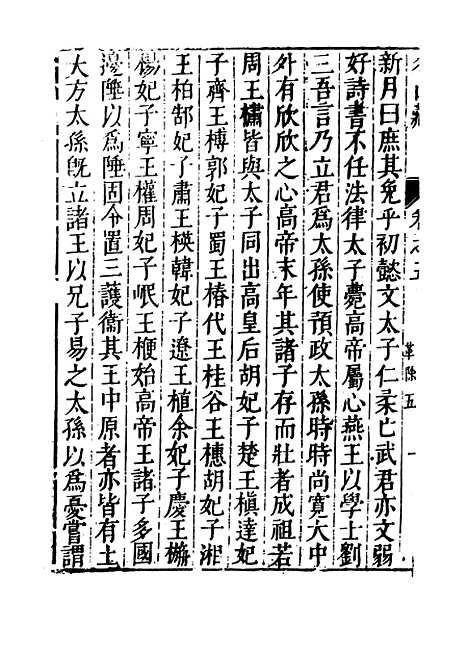 名山藏
卷之五
革除五
一
新月曰庶其免乎初懿文太子仁柔亡武君亦文弱
好詩書不任法律太子薨高帝屬心燕王以學士劉
三吾言乃立君爲太孫使預政太孫時時尚寬大中
外有欣欣之心高帝末年其諸子存而壯者成祖若
周王橚皆與太子同出高皇后胡妃子楚王楨達妃
子齊王榑郭妃子蜀王椿代王桂谷王橞胡妃子湘
王柏郜妃子肅王楧韓妃子遼王植余妃子慶王㮵
楊妃子寧王權周妃子岷王楩始高帝王諸子多國
邊陲以爲陲固令置三護衞其王中原者亦皆有土
大方太孫旣立諸王以兄子易之太孫以爲憂嘗謂